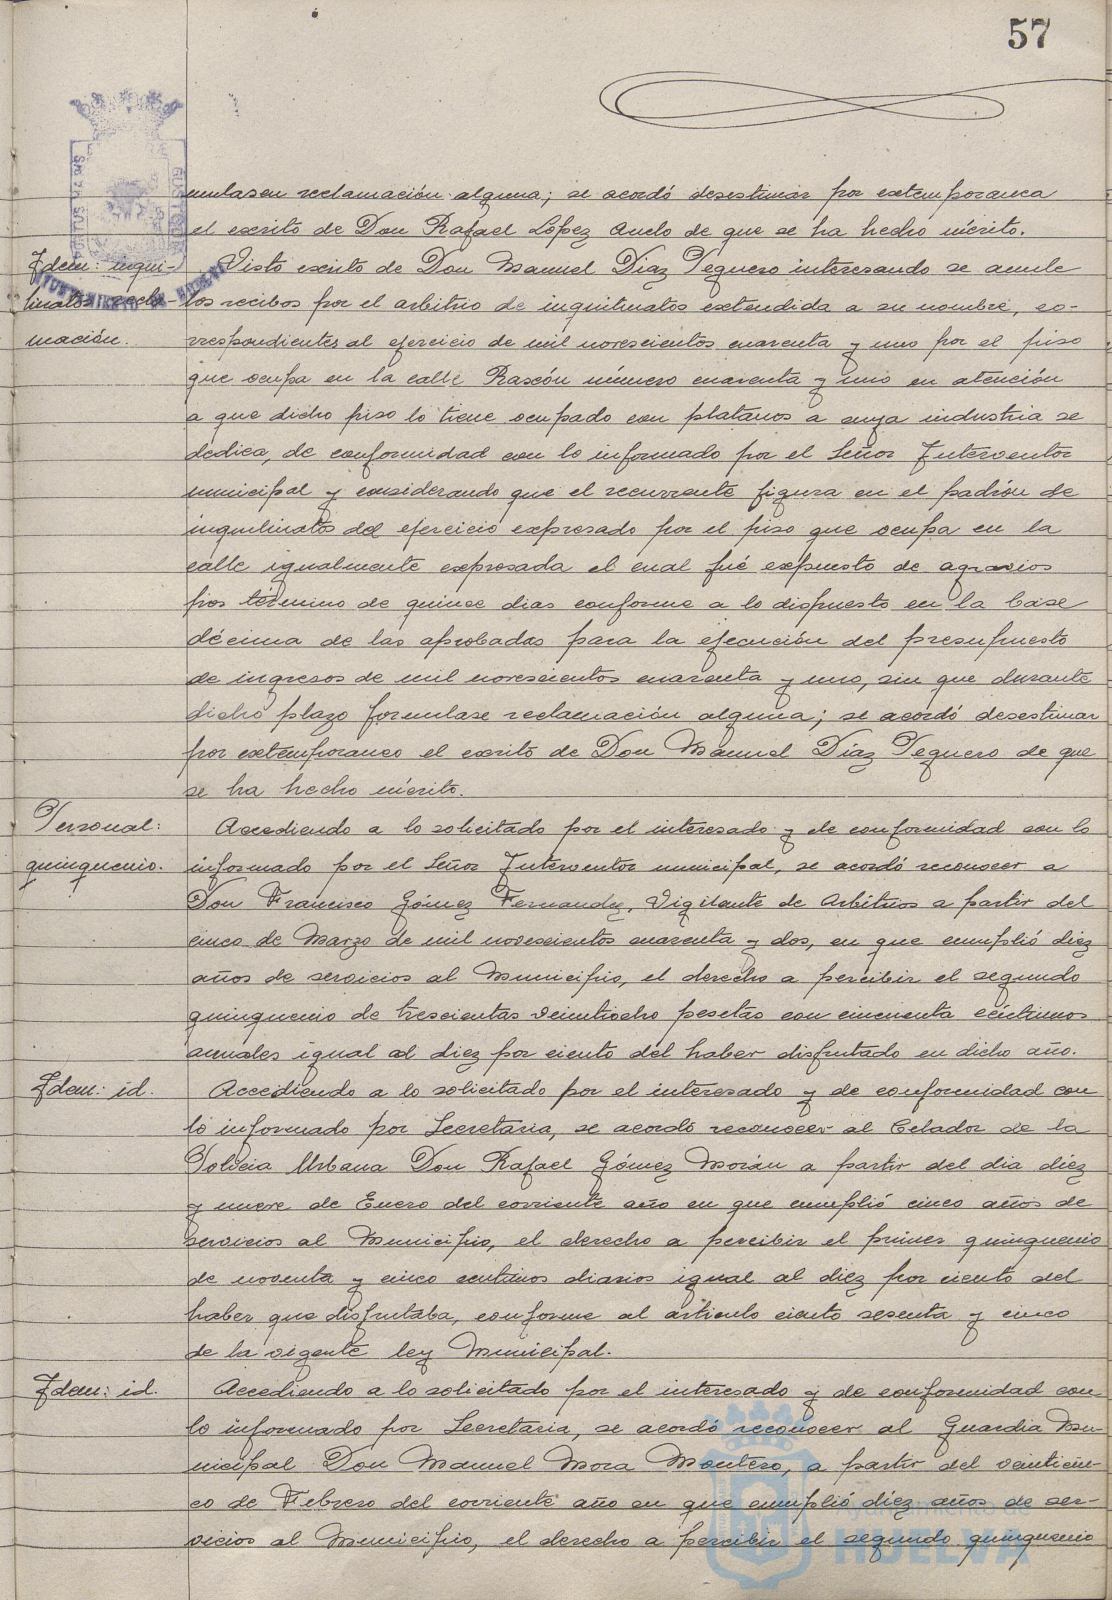 57
mulasen reclamación alguna; se acordó desestimar por extemporanea
el escrito de Don Rafael López Anelo de que se ha hecho mérito.
Idem: inqui-
linatos recla-
mación.
Visto escrito de Don Manuel Diaz Peguero interesando se anule
los recibos por el arbitrio de inquilinatos extendida a su nombre, co-
rrespondientes al ejercicio de mil novescientos cuarenta y uno por el piso
que ocupa en la calle Rascón número cuarenta y uno en atención
a que dicho piso lo tiene ocupado con platanos a cuya industria se
dedica, de conformidad con lo informado por el Señor Interventor
municipal y considerando que el recurrente figura en el padrón de
inquilinatos del ejercicio expresado por el piso que ocupa en la
calle igualmente expresada el cual fué expuesto de agravios
por término de quince dias conforme a lo dispuesto en la base
décima de las aprobadas para la ejecución del presupuesto
de ingresos de mil novescientos cuarenta y uno, sin que durante
dicho plazo formulase reclamación alguna; se acordó desestimar
por extemporaneo el escrito de Don Manuel Díaz Peguero de que
se ha hecho mérito.
Personal:
quinquenio.
Accediendo a lo solicitado por el interesado y de conformidad con lo
informado por el Señor Interventor municipal, se acordó reconocer a
Don Francisco Gómez Fernandez, Vigilante de Arbitrios a partir del
cinco de Marzo de mil novescientos cuarenta y dos, en que cumplió diez
años de servicios al Municipio, el derecho a percibir el segundo
quinquenio de trescientas veintiocho pesetas con cincuenta céntimos
anuales igual al diez por ciento del haber disfrutado en dicho año.
Idem: id.
Accediendo a lo solicitado por el interesado y de conformidad con
lo informado por Secretaria, se acordó reconocer al Celador de la
Policia Urbana Don Rafael Gómez Morián a partir del dia diez
y nueve de Enero del corriente año en que cumplió cinco años de
servicios al Municipio, el derecho a percibir el primer quinquenio
de noventa y cinco centimos diarios igual al diez por ciento del
haber que disfrutaba, conforme al articulo ciento sesenta y cinco
de la vigente ley Municipal.
Idem: id.
Accediendo a lo solicitado por el interesado y de conformidad con
lo informado por Secretaria, se acordó reconocer al Guardia Mu-
nicipal Don Manuel Mora Montero, a partir del veinticin-
co de Febrero del corriente año en que cumplió diez años de ser-
vicios al Municipio, el derecho a percibir el segundo quinquenio
Ayuntamiento de
HUELVA